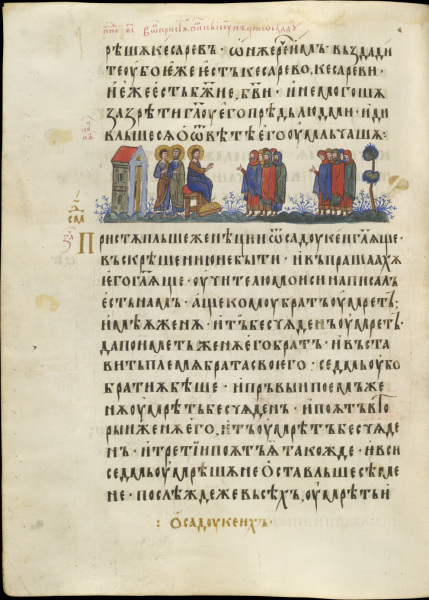 рѣшѫ кесаревъ · ѡн же рече имъ въздади
те оубо еже естъ кесарево, кесареви ·
и еже естъ бж҃ие, бг҃ви · и не могошѫ
зазрѣти гл҃оу его прѣдъ людми · и ди
вльшесѧ ѡ ѿвѣтѣ его оумлъчашѧ :
Пристѫпльше же нѣции ѿ садоукеи гл҃ѧще
въскрѣшению не быти · и въпрашаахѫ
его гл҃ѧще · оучителю моиси написа
естъ намъ · аще комоу братъ оумретъ ·
имѣѧ женѫ · и тъ бесчѧденъ оумретъ ·
да поиметъ женѫ его братъ · и въста
витъ племѧ брата своего : седмь оубо
братиѧ бѣше · и пръвыи поемъ же
нѫ оумрѣтъ бесчѧденъ · и поѧтъ вто
рыи женѫ его, и тъ оумрѣтъ бесчѧде
нъ · и третии поѧтъ ѫ такожде · и вси
седмь оумрѣшѫ не оставльше сѣме
не · послѣждеже въсѣхъ, оумрѣтъ и
: о садоукеихъ ·